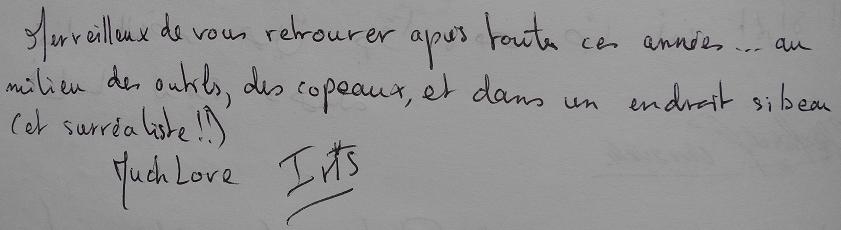 Merveilleux de vous retrouver après toutes ces années... au
milieu des outils, des copeaux, et dans un endroit si beau
(et surréaliste!!)
Much Love Iris